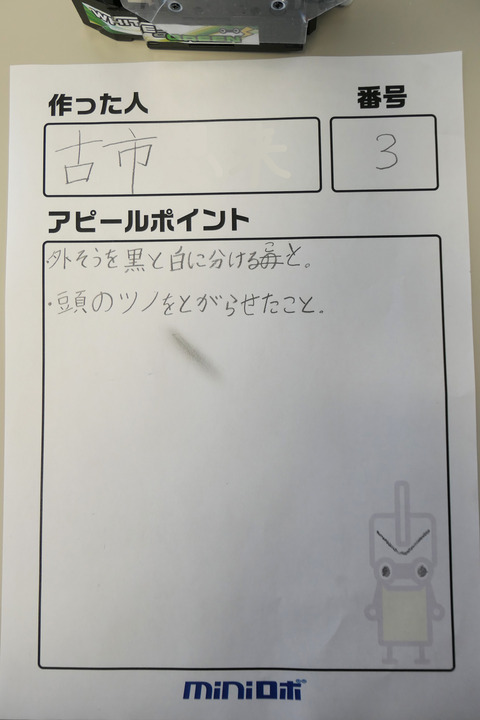 WHITE & GREEN
作った人
番号
古市
3
アピールポイント
・外そうを黒と白に分けると。
・頭のツノをとがらせたこと。
miniロボ